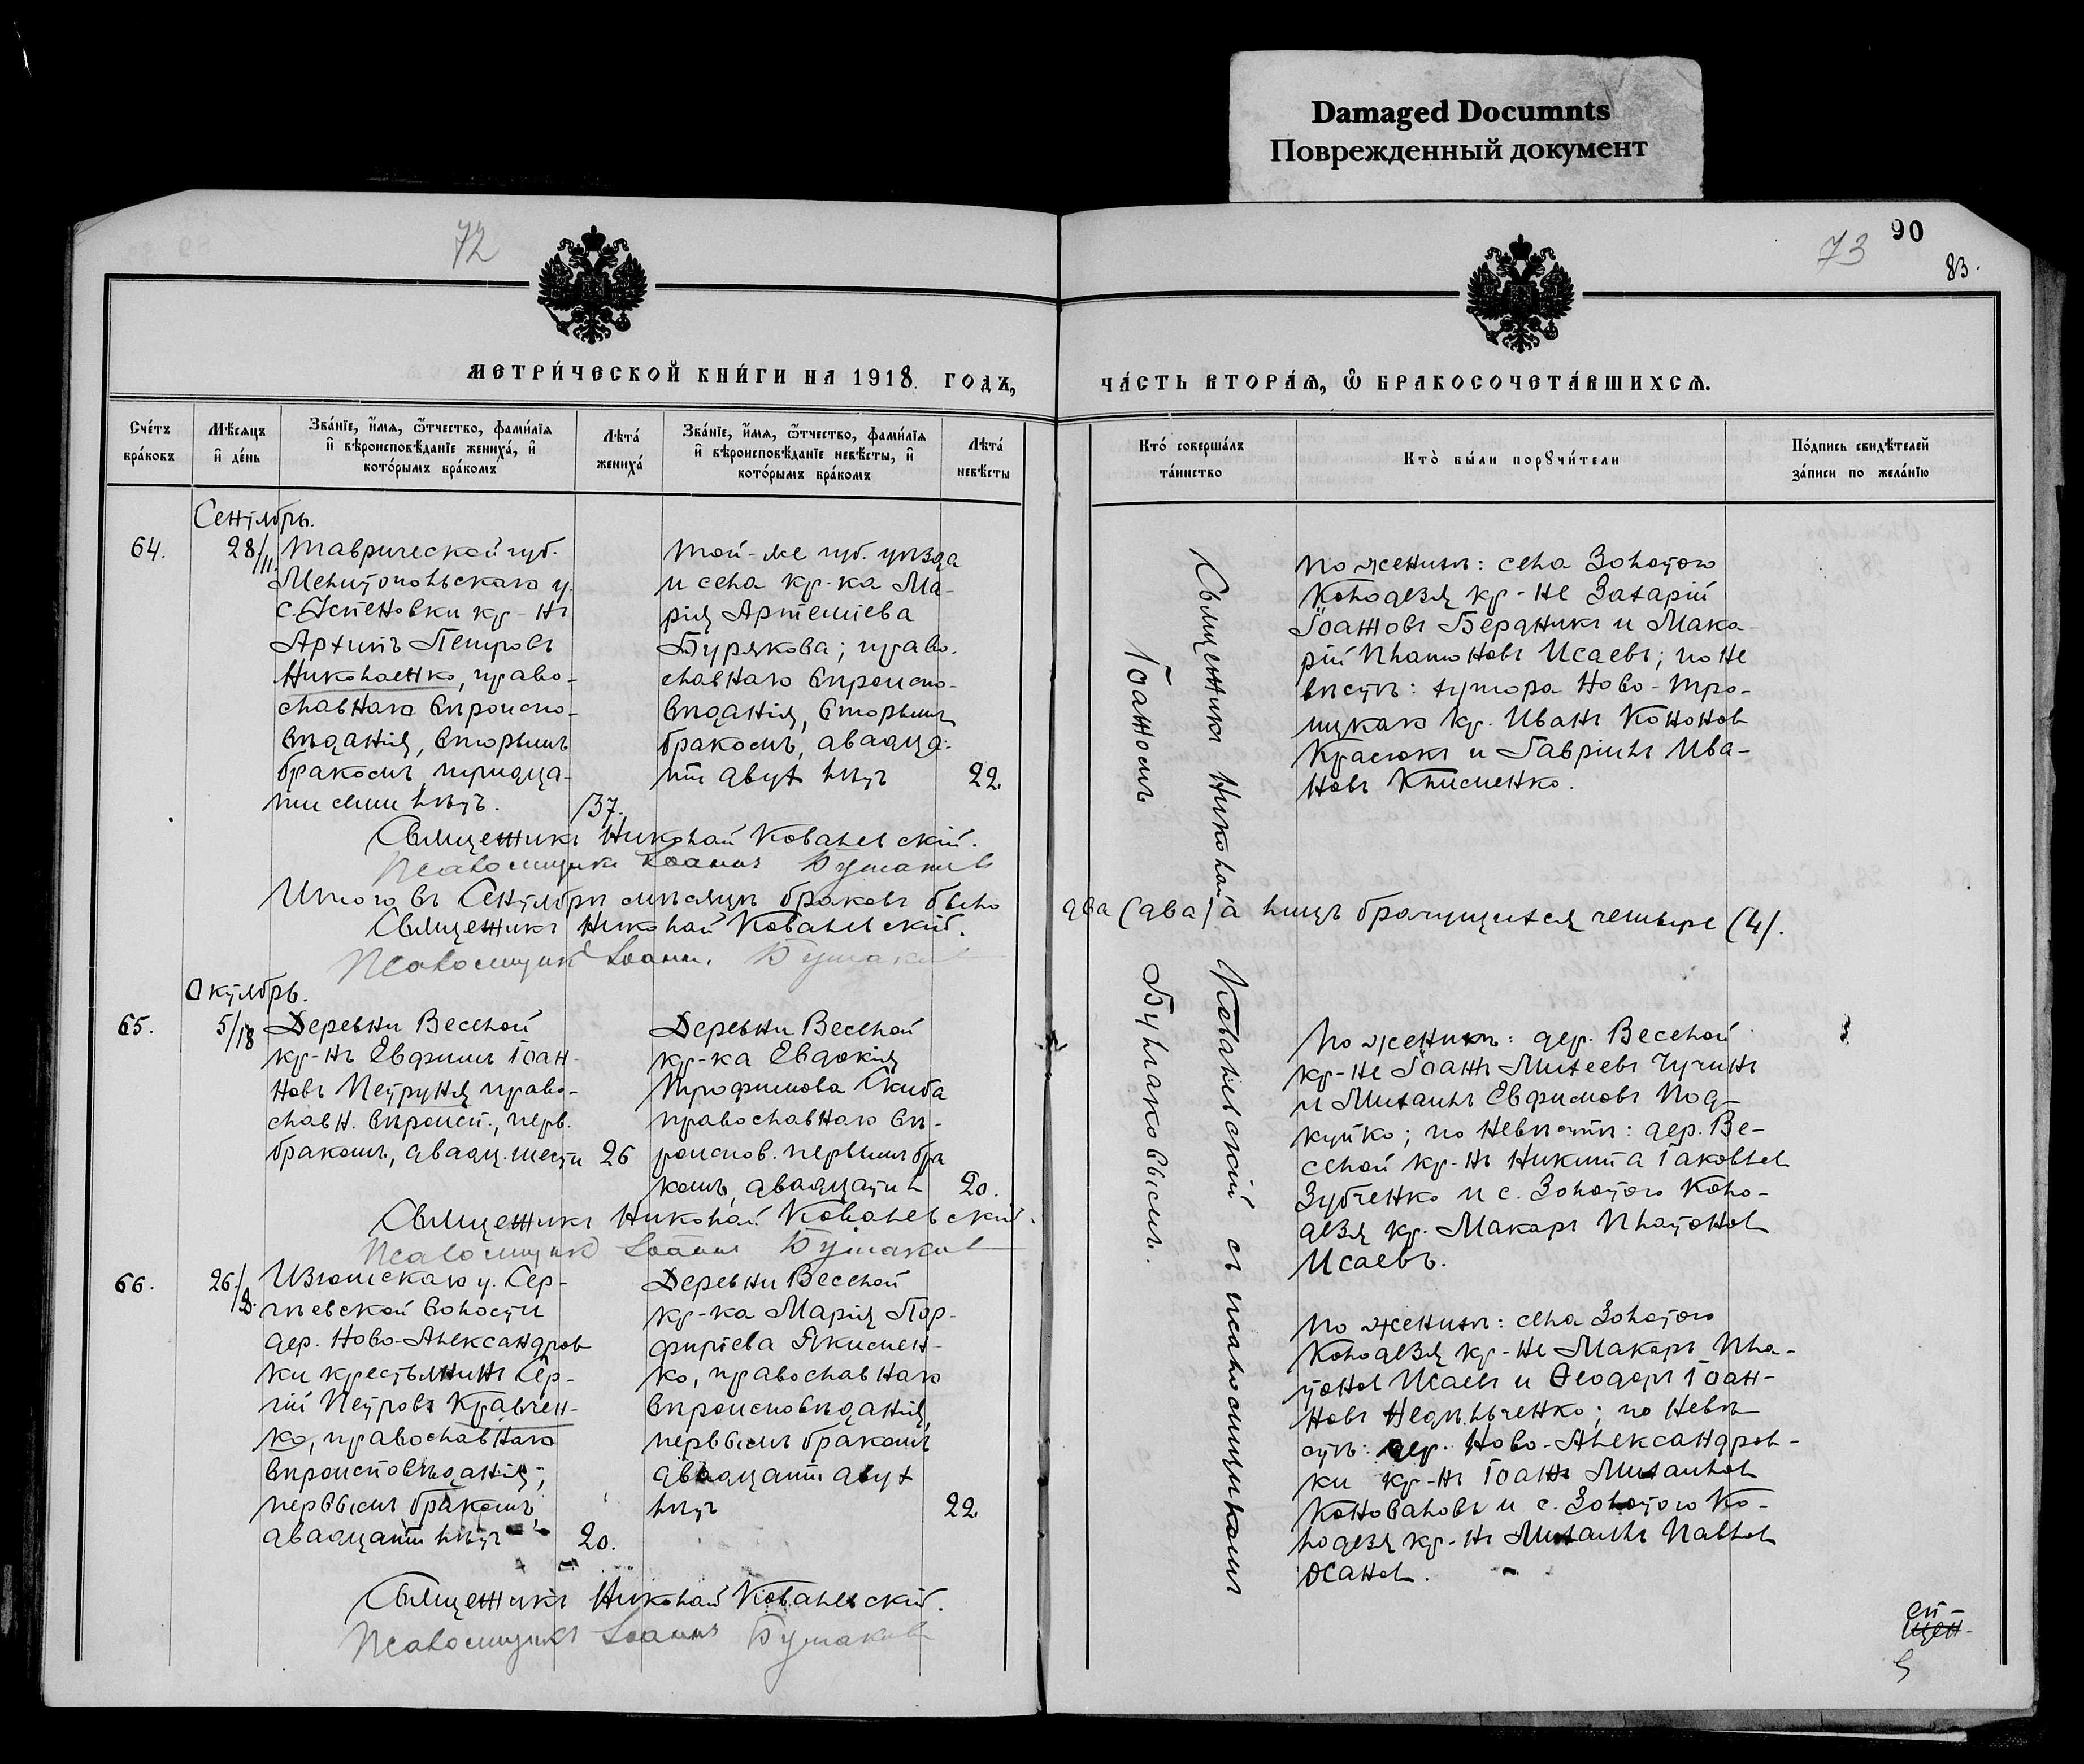 Damaged Documnts
Поврежденный документ
72
73
90
83.
МЕТРИ́ЧЕСКОЙ КНИ́ГИ НА 1918. ГОДЪ,
ЧА́СТЬ ВТОРА́Ѧ, Ѡ҆ БРАКОСОЧЕТА́ВШИХСѦ.
Сче́тъ бра́ковъ
Мѣ́сяцъ и҆ де́нь
Зва́нїе, и҆́мя, ѻ҆́тчество, фами́лїя
и҆ вѣроисповѣ́данїе жениха́, и҆
кото́рымъ бра́комъ
Лѣта̀ жениха́
Зва́нїе, и҆́мя, ѻ҆́тчество, фами́лїя
и҆ вѣроисповѣ́данїе невѣ́сты, и҆
кото́рымъ бра́комъ
Лѣта̀ невѣ́сты
Кто̀ соверша́лъ та́инство
Кто̀ бы́ли порꙋчи́тели
По́дпись свидѣ́телей за́писи по жела́нїю
Сентябрь.
64.
28/11.
Таврической губ.
Мелитопольскаго у.
с. Успеновки кр-нъ
Архипъ Петровъ
Николаенко, право-
славнаго вѣроиспо-
вѣданія, вторымъ
бракомъ, тридца-
ти семи лѣтъ.
37.
Той-же губ. уѣзда
и села кр-ка Ма-
рія Артемiева
Бурякова; право-
славнаго вѣроиспо-
вѣданія, вторымъ
бракомъ, двадца-
ти двух лѣтъ
22.
По женихѣ: села Золотого
Колодезя кр-не Захарій
Іоанновъ Бердникъ и Мака-
рій Платоновъ Исаевъ; по не
вѣстѣ: хутора Ново-Тро-
ицкаго кр. Иванъ Кононовъ
Красюкъ и Гавріилъ Ива-
новъ Клименко.
Священникъ Николай Ковалевскій.
Псаломщикъ Іоаннъ
Итого въ Сентябрѣ мѣсяцѣ браковъ было два (два) а лицъ брачущихся четыре (4).
Священникъ Николай Ковалевскій.
Псаломщикъ Іоаннъ
Октябрь.
65.
5/18
Деревни Веселой
кр-нъ Евфимъ Іоан-
новъ Петруня право-
славн. вѣроисп., перв.
бракомъ, двадц. шести
26
Деревни Веселой
кр-ка Евдокія
Трофимова Скиба
православнаго вѣ-
роиспов. первымъ бра
комъ, двадцати л
20.
По женихѣ: дер. Веселой
кр-не Іоаннъ Михеевъ Чучинъ
и Михаилъ Евфимовъ Под-
куйко; по невѣстѣ: дер. Ве-
селой кр-нъ Никита Іаковлев
Зубченко и с. Золотого Коло-
дезя кр. Макаръ Платонов
Исаевъ.
Священникъ Николай Ковалевскій.
Псаломщикъ Іоаннъ
66.
26/8.
Изюмскаго у. Сер-
гѣевской волости
дер. Ново-Александров
ки крестьянинъ Сер-
гій Петровъ Кравчен-
ко, православнаго
вѣроисповѣданія;
первымъ бракомъ,
двадцати лѣтъ
20.
Деревни Веселой
кр-ка Марія Пор-
фиріева Якимен-
ко, православнаго
вѣроисповѣданія,
первымъ бракомъ
двадцати двух
лѣтъ
22.
По женихѣ: села Золотого
Колодезя кр-не Макаръ Пла-
тонов Исаевъ и Ѳеодоръ Іоан-
новъ Недѣльченко; по невѣ
стѣ: дер. Ново-Александров-
ки кр-нъ Іоаннъ Михаилов
Коноваловъ и с. Золотого Ко-
лодезя кр-нъ Михаилъ Павлов
Жанов.
Священникъ Николай Ковалевскій.
Псаломщикъ Іоаннъ
Священникъ Николай Ковалевскій съ псаломщикомъ
Іоанномъ